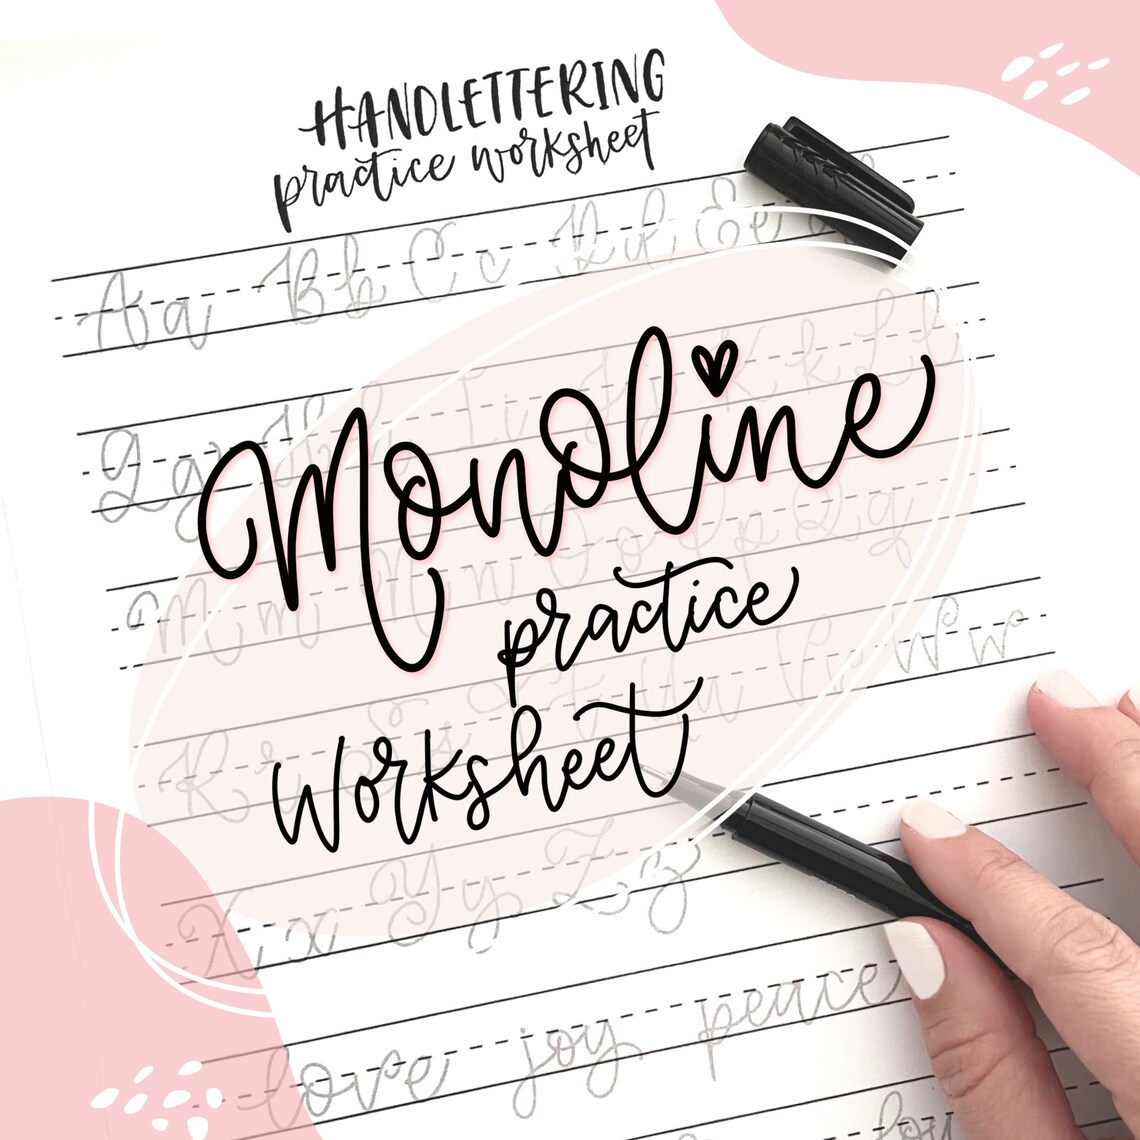 HANDLETTERING
practice worksheet
Aa Bb Cc Dd Ee
Gg Hh Ii Jj Kk Ll
Monoline
Mm Nn Oo Pp Qq
practice
Rr Ss Tt Uu Vv Ww
Worksheet
Xx Yy Zz
love joy peace